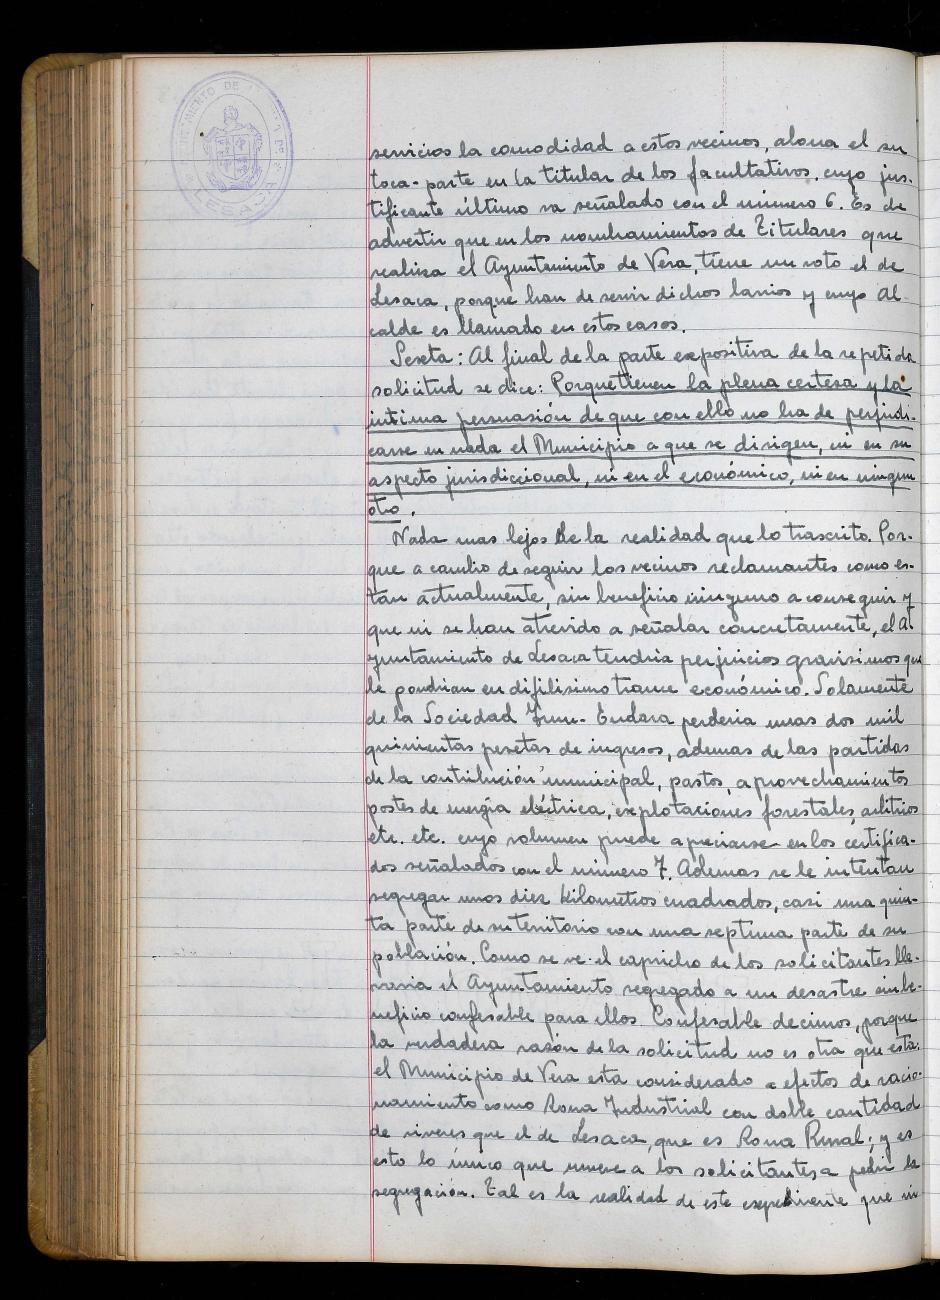 AYUNTAMIENTO DE
LESACA
servicios la comodidad a estos vecinos, abona el su
toca-parte en la titular de los facultativos, cuyo jus-
tificante último va señalado con el número 6. Es de
advertir que en los nombramientos de Titulares que
realiza el Ayuntamiento de Vera, tiene un voto el de
Lesaca, porque han de servir dichos barrios y cuyo Al-
calde es llamado en estos casos.
Sexta: Al final de la parte expositiva de la repetida
solicitud se dice: Porque tienen la plena certesa y la
intima persuasión de que con ello no ha de perjudi-
carse en nada el Municipio a que se dirigen, ni en su
aspecto jurisdiccional, ni en el económico, ni en ningun
otro.
Nada mas lejos de la realidad que lo trascrito. Por-
que a cambio de seguir los vecinos reclamantes como es-
tan actualmente, sin beneficio ninguno a conseguir y
que ni se han atrevido a señalar concretamente, el A-
yuntamiento de Lesaca tendria perjuicios gravisimos que
le pondrian en dificilisimo trance económico. Solamente
de la Sociedad Irun-Endara perderia unas dos mil
quinientas pesetas de ingresos, ademas de las partidas
de la contribución municipal, pastos, aprovechamientos
postes de energia eléctrica, explotaciones forestales, arbitrios
etc. etc. cuyo volumen puede apreciarse en los certifica-
dos señalados con el número 7. Ademas se le intentan
segregar unos diez kilometros cuadrados, casi una quin-
ta parte de su territorio con una septima parte de su
población. Como se ve el capricho de los solicitantes lle-
varia el Ayuntamiento segregado a un desastre sin be-
neficio confesable para ellos. Confesable decimos, porque
la verdadera razón de la solicitud no es otra que esta:
el Municipio de Vera esta considerado a efectos de racio-
namiento como Zona Industrial con doble cantidad
de viveres que el de Lesaca, que es Zona Rural; y es
esto lo único que mueve a los solicitantes a pedir la
segregación. Tal es la realidad de este expediente que ni